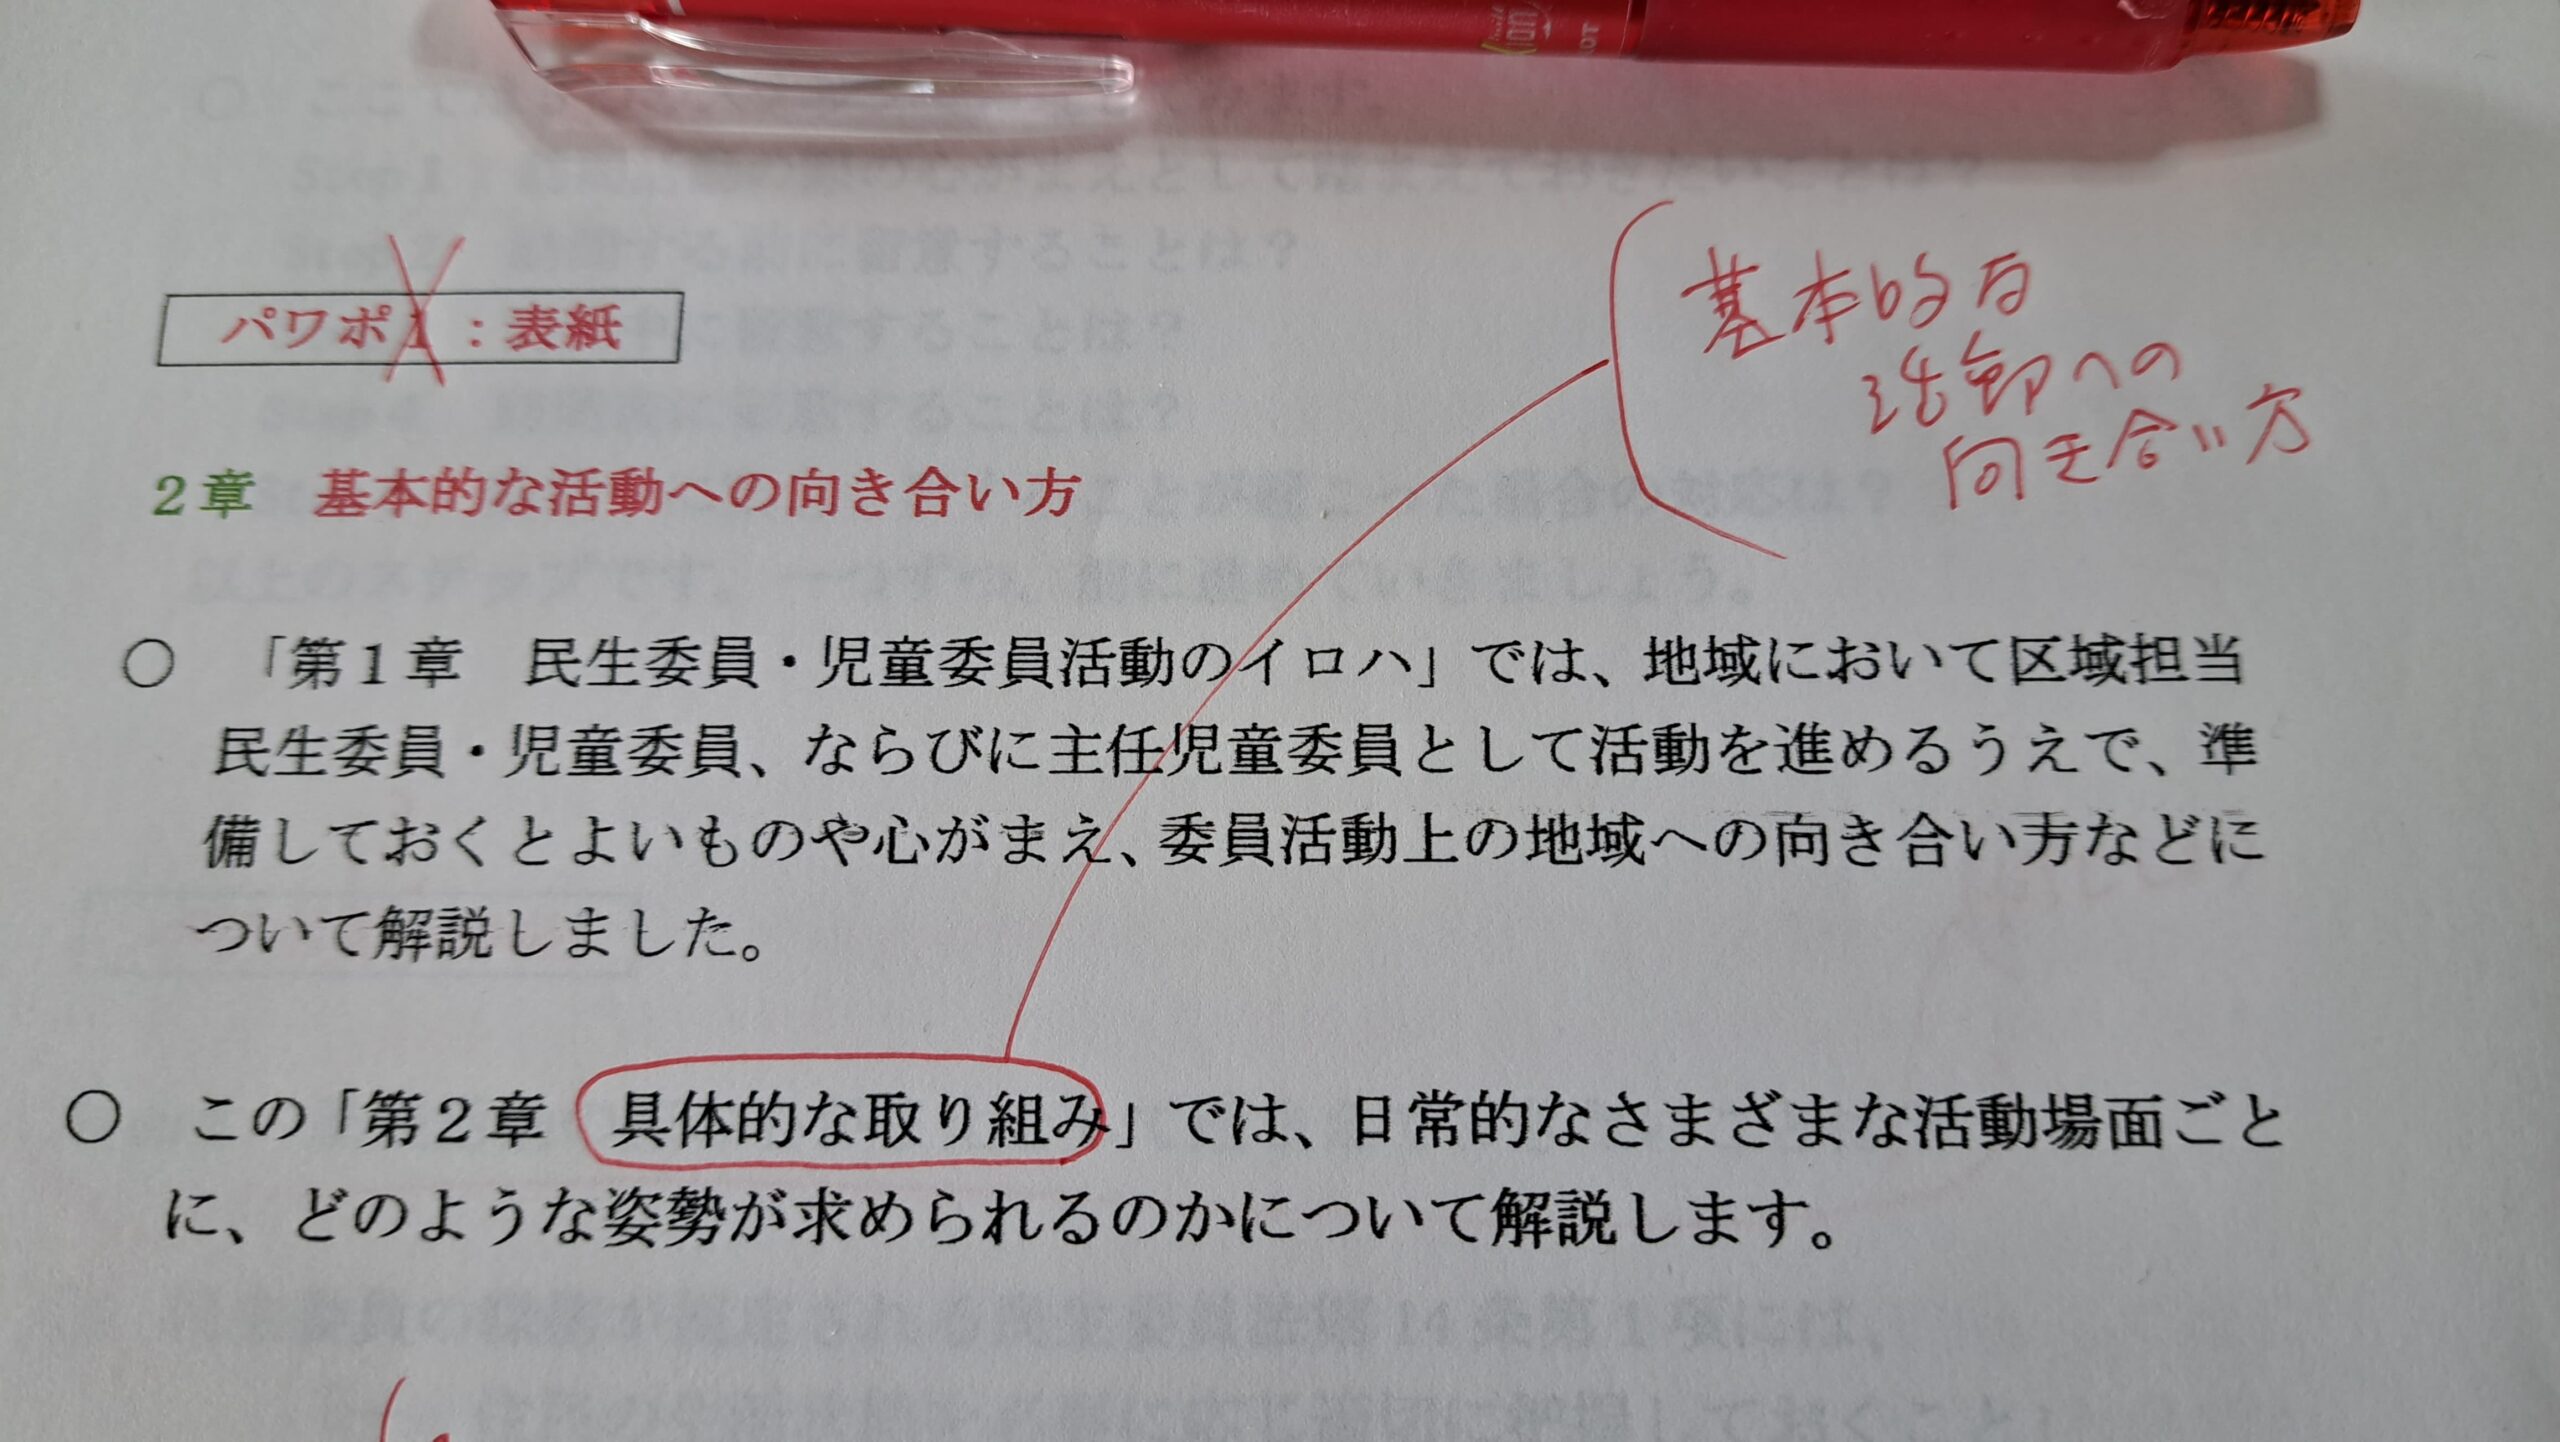 パワポ1：表紙
基本的な
活動への
向き合い方
2章　基本的な活動への向き合い方
○　「第1章　民生委員・児童委員活動のイロハ」では、地域において区域担当
民生委員・児童委員、ならびに主任児童委員として活動を進めるうえで、準
備しておくとよいものや心がまえ、委員活動上の地域への向き合い方などに
ついて解説しました。
○　この「第2章　具体的な取り組み」では、日常的なさまざまな活動場面ごと
に、どのような姿勢が求められるのかについて解説します。